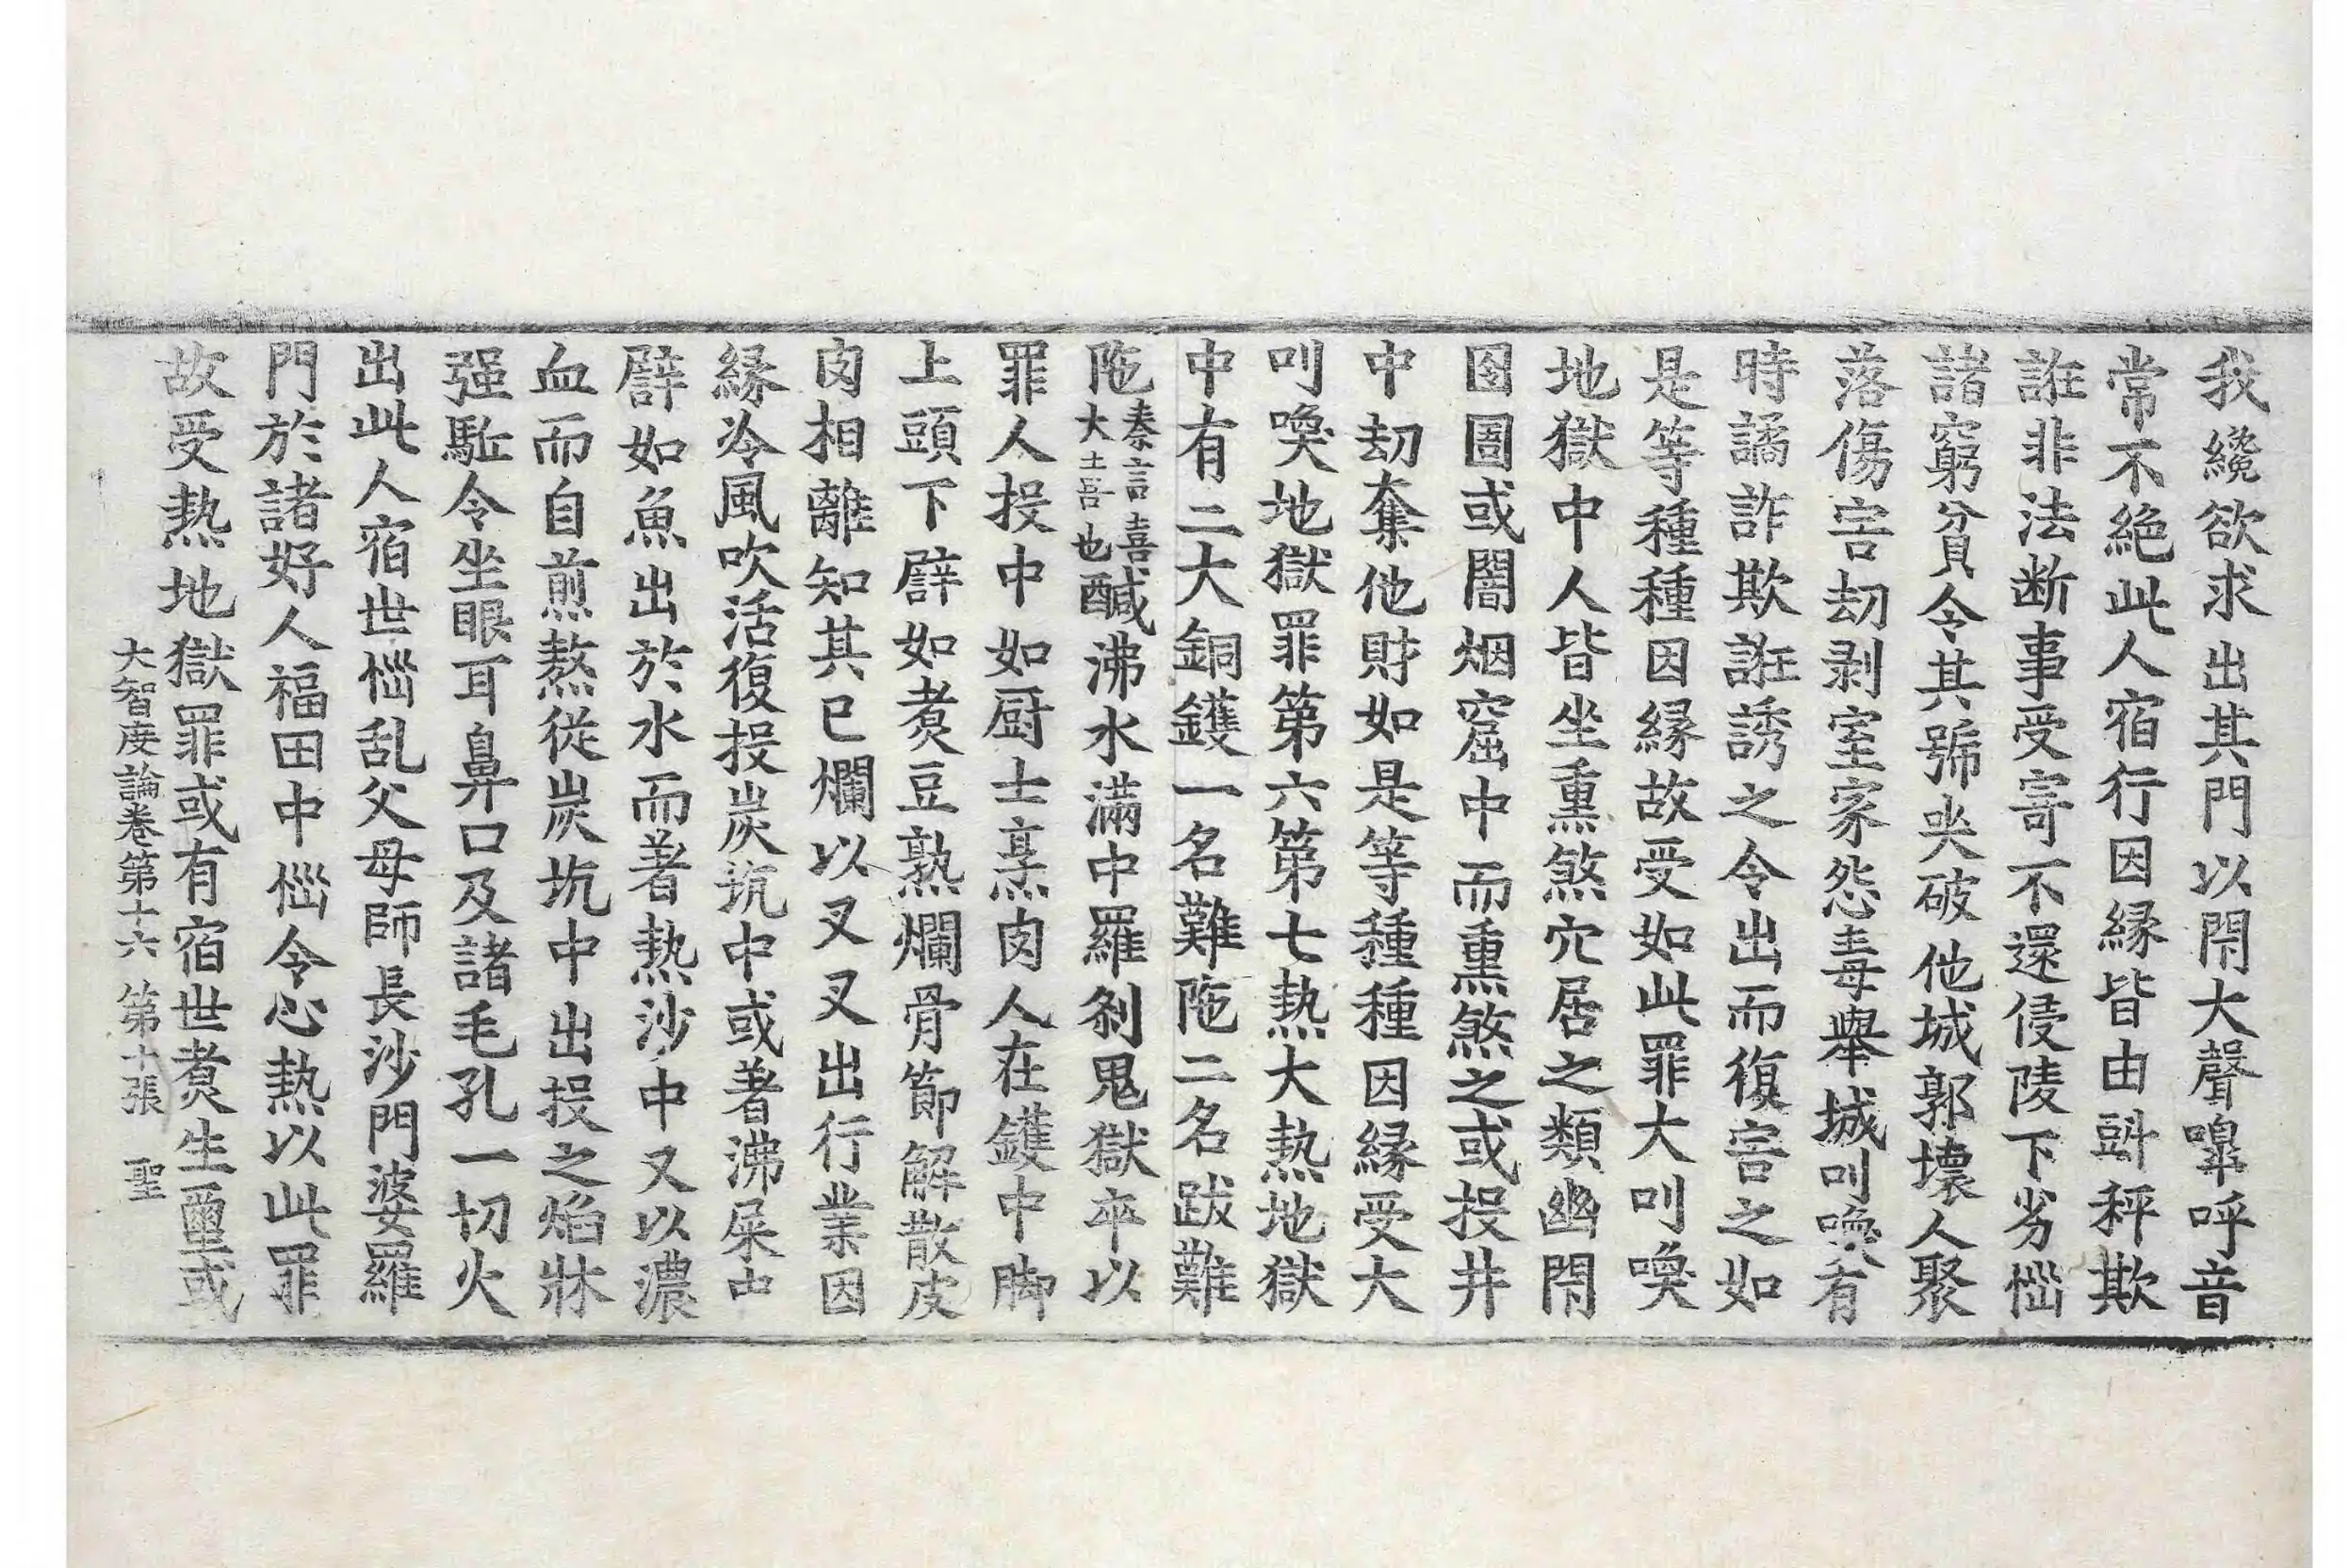 我纔欲求出其門以閇大聲嘷呼音
常不絶此人宿行因縁皆由㪷秤欺
誑非法断事受寄不還侵陵下劣惱
諸窮貧令其號哭破他城郭壞人聚
落傷害劫剥室家怨毒舉城叫喚有
時譎詐欺誑誘之令出而復害之如
是等種種因縁故受如此罪大叫喚
地獄中人皆坐熏煞穴居之類幽閇
囹圄或闇烟窟中而熏煞之或投井
中劫奪他財如是等種種因縁受大
叫喚地獄罪第六第七熱大熱地獄
中有二大銅鑊一名難陁二名跋難
陁秦言喜大喜也醎沸水滿中羅刹鬼獄卒以
罪人投中如厨士烹肉人在鑊中脚
上頭下譬如煑豆熟爛骨節解散皮
肉相離知其已爛以叉叉出行業因
縁冷風吹活復投炭坑中或著沸屎中
譬如魚出於水而著熱沙中又以濃
血而自煎熬從炭坑中出投之焰牀
强駈令坐眼耳鼻口及諸毛孔一切火
出此人宿世惱乱父母師長沙門婆羅
門於諸好人福田中惱令心熱以此罪
故受熱地獄罪或有宿世煑生璽或
大智度論卷第十六 第十張 聖